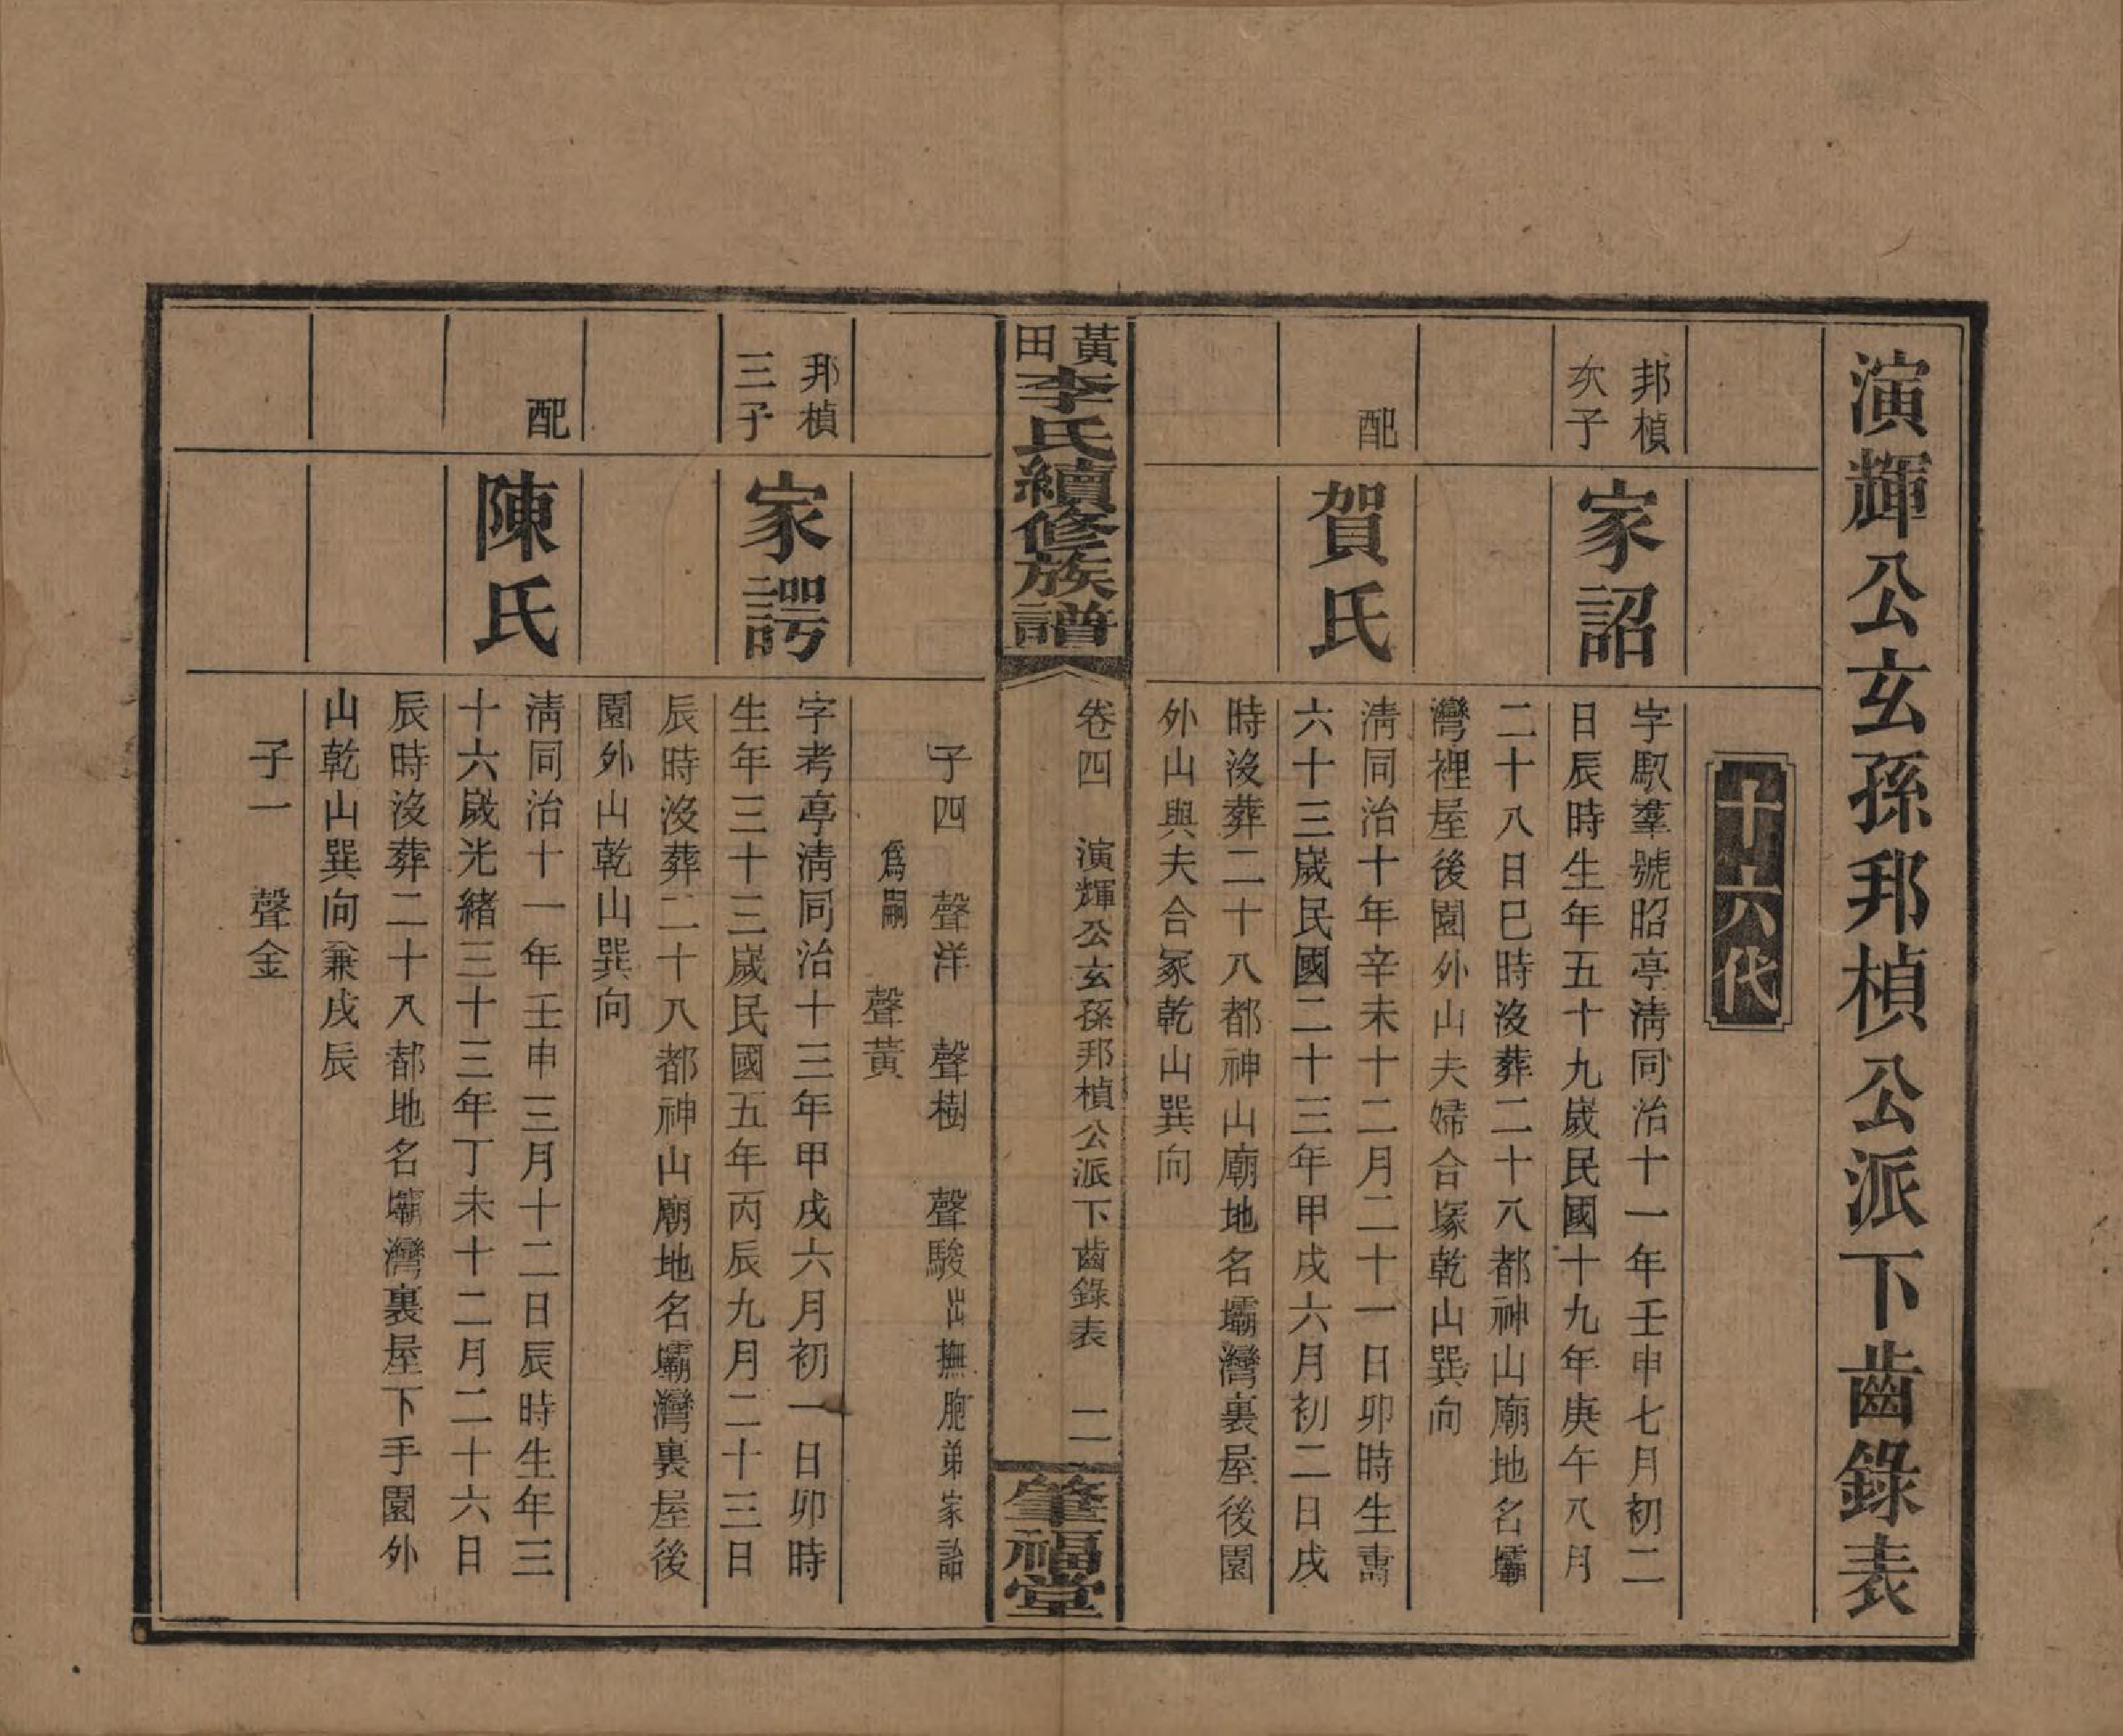 演輝公玄孫邦楨公派下齒錄表
十六代
邦楨
次子
家詔
字馭羣號昭亭淸同治十一年壬申七月初二
日辰時生年五十九嵗民國十九年庚午八月
二十八日巳時沒葬二十八都神山廟地名壩
灣裡屋後園外山夫婦合塚乾山巽向
配
賀氏
淸同治十年辛未十二月二十一日卯時生壽
六十三嵗民國二十三年甲戌六月初二日戌
時沒葬二十八都神山廟地名壩灣裏屋後園
外山與夫合冢乾山巽向
黃田李氏續修族譜
卷四 演輝公玄孫邦楨公派下齒錄表 二
肇福堂
子四 聲洋 聲樹 聲駿出撫胞弟家
爲嗣 聲黃
邦楨
三子
家諤
字考亭淸同治十三年甲戌六月初一日卯時
生年三十三嵗民國五年丙辰九月二十三日
辰時沒葬二十八都神山廟地名壩灣裏屋後
園外山乾山巽向
配
陳氏
淸同治十一年壬申三月十二日辰時生年三
十六嵗光緒三十三年丁未十二月二十六日
辰時沒葬二十八都地名壩灣裏屋下手園外
山乾山巽向兼戌辰
子一 聲金